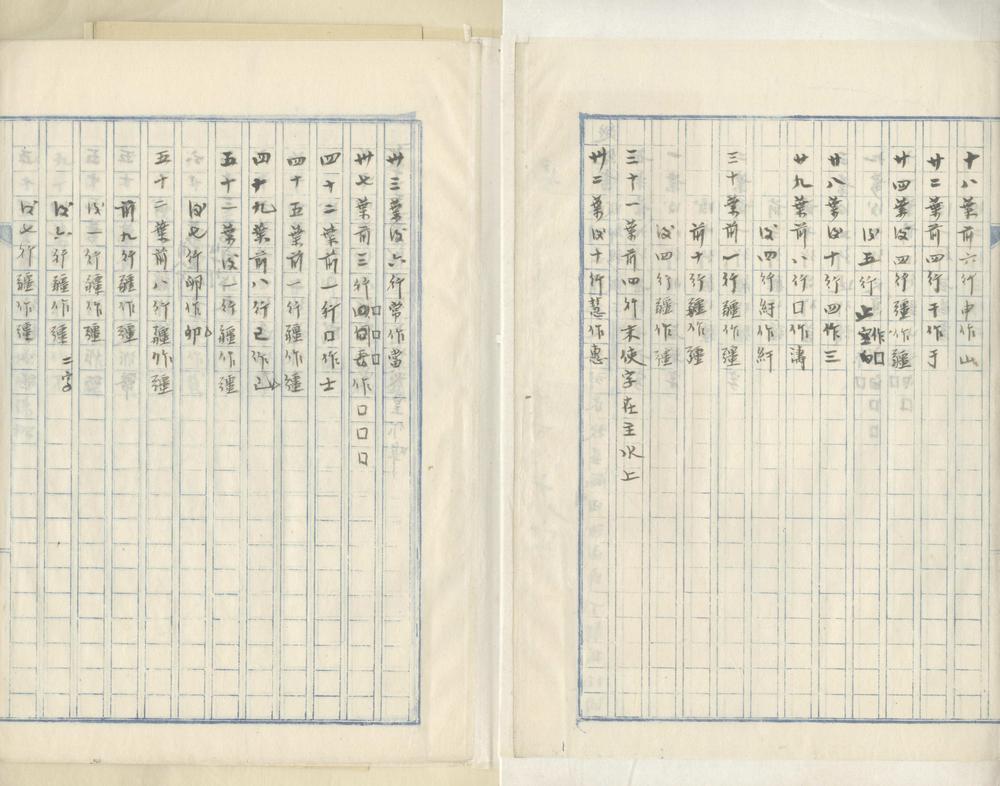 十八葉前六行中作山
廿二葉前四行干作于
廿四葉後四行彊作疆
後五行
廿八葉後十行四作三
廿九葉前八行口作濤
後四行紆作紆
三十葉前一行疆作彊
前十行疆作彊
後四行疆作彊
三十一葉前四行末使字在主水上
卅二葉後十行慧作惠
卅三葉後六行常作當
卅七葉前三行作口口口
四十二葉前一行口作士
四十五葉前一行疆作彊
四十九葉前八行已作己
五十二葉後一行疆作彊
後七行卵作卯
五十二葉前八行疆作彊
前九行疆作彊
後一行疆作彊
後六行疆作彊二字
後七行疆作彊